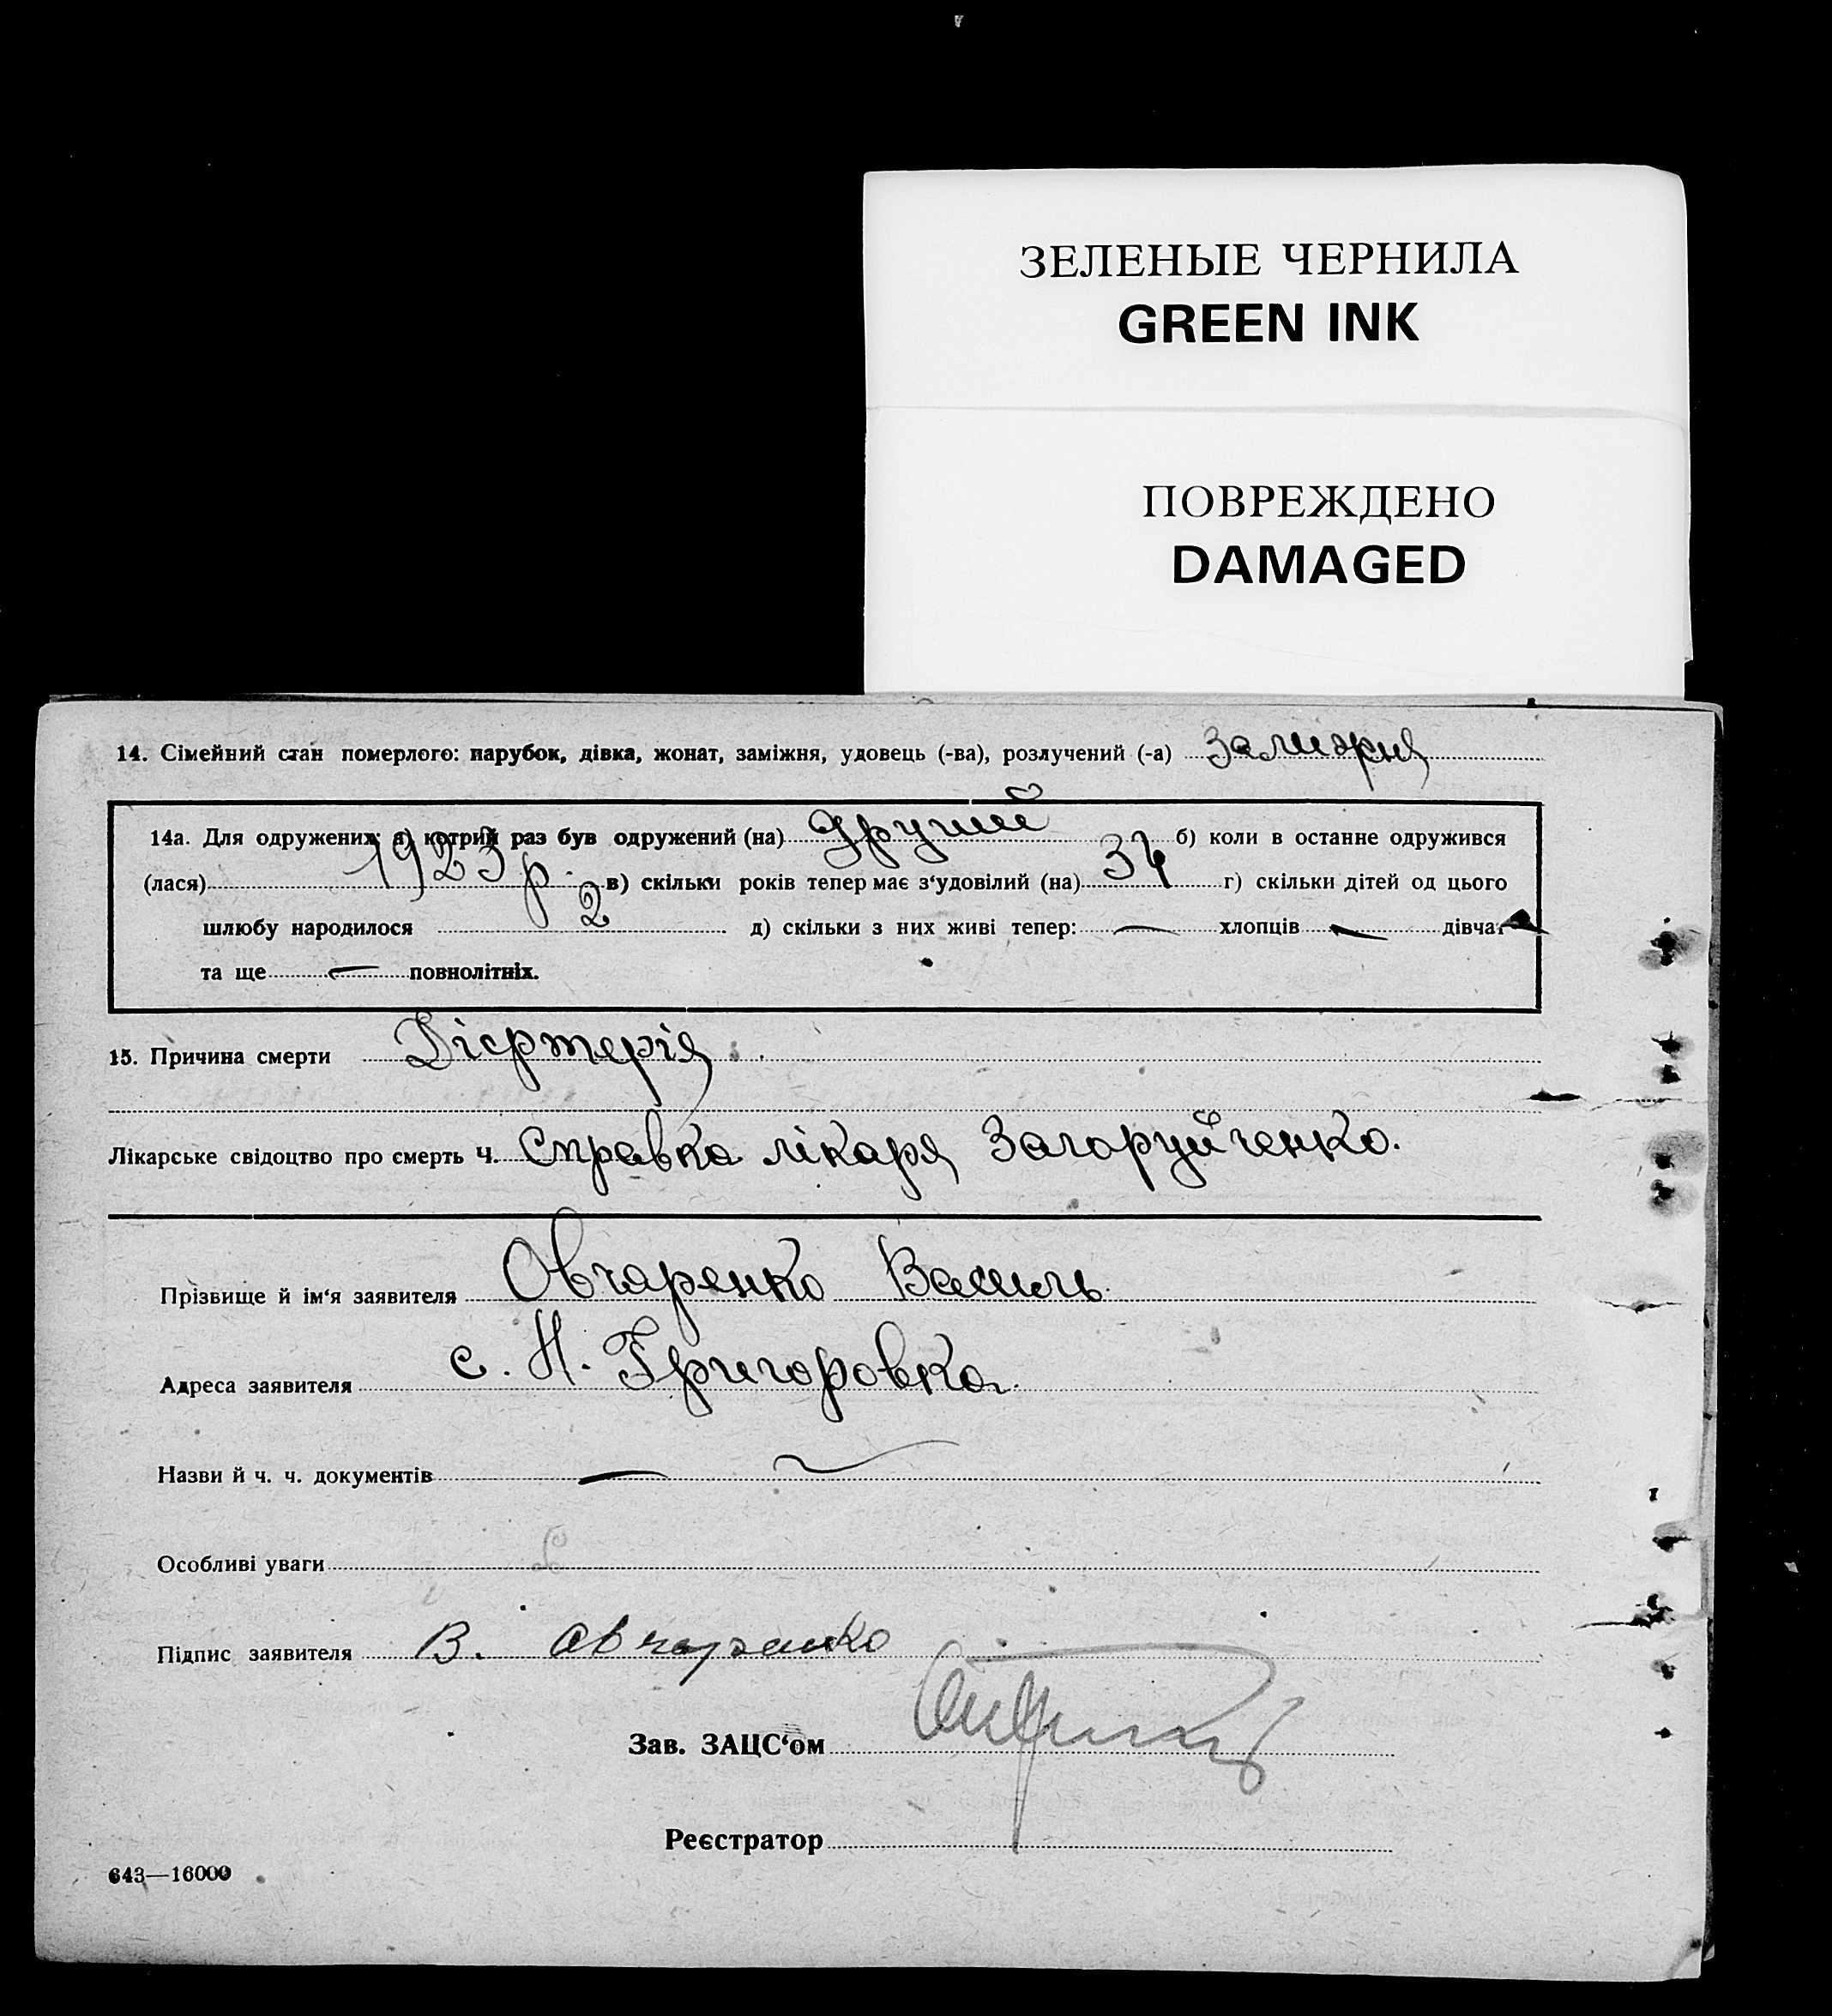 ЗЕЛЕНЫЕ ЧЕРНИЛА
GREEN INK
ПОВРЕЖДЕНО
DAMAGED
14. Сімейний стан померлого: парубок, дівка, жонат, заміжня, удовець (-ва), розлучений (-а) замижня
14а. Для одружених: а) котрий раз був одружений (на) другий б) коли в останне одружився
(лася) 1923 р. в) скільки років тепер має з‘удовілий (на) 34 г) скільки дітей од цього
шлюбу народилося 2 д) скільки з них живі тепер: — хлопців — дівчат
та ще — повнолітніх.
15. Причина смерти Дієртерія
Лікарське свідоцтво про смерть Ч. Справка лікаря Загоруйченко.
Прізвище й ім‘я заявителя Овчаренко Василь
Адреса заявителя с. Н. Григоровка
Назви й ч. ч. документів —
Особливі уваги
Підпис заявителя В. Овчаренко
Зав. ЗАЦС‘ом
Реєстратор
643—16000